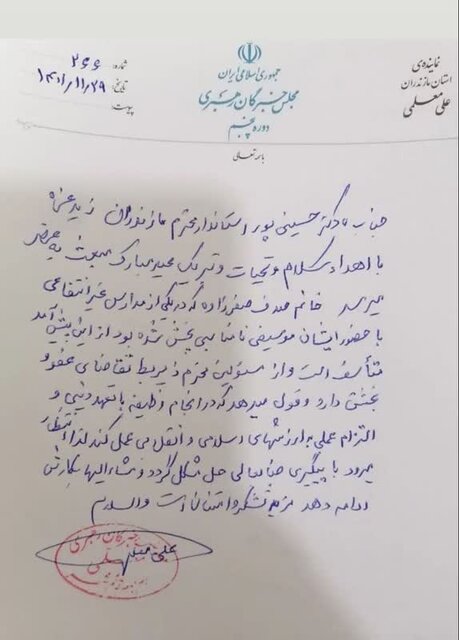 جمهوری اسلامی ایران
مجلس خبرگان رهبری
دوره پنجم
نماینده‌ی
استان مازندران
علی معلمی
شماره: ۲۶۶
تاریخ: ۱۴۰۱/۱۱/۲۹
پیوست:
باسمه تعالی
جناب دکتر حسینی پور استاندار محترم مازندران زید عزه
با اهداء سلام و تحیات و تبریک عید مبارک مبعث به عرض
میرسد خانم صدف صفرزاده که در یکی از مدارس غیرانتفاعی
با حضور ایشان موسیقی نامناسبی پخش شده بود از این پیش آمد
متأسف است و از مسئولین محترم ذیربط تقاضای عفو و
بخشش دارد و قول میدهد که در انجام وظیفه با تعهد دینی و
التزام عملی به ارزشهای اسلامی و انقلابی عمل کند لذا انتظار
میرود با پیگیری جنابعالی حل مشکل گردد و مشارالیها بکارش
ادامه دهد مزید تشکر و امتنان است والسلام
علی معلمی
خبرگان رهبری